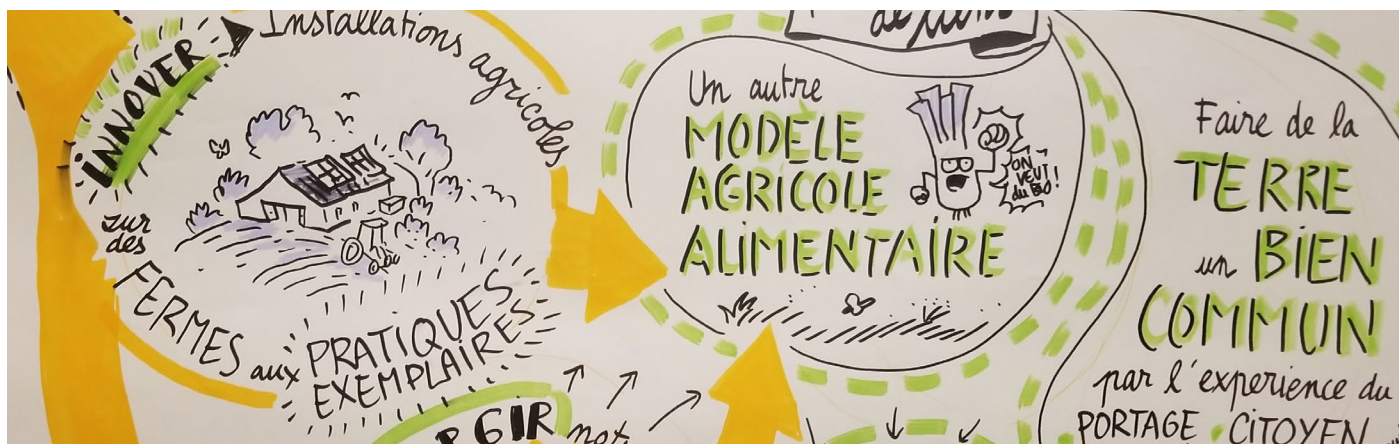 INNOVER
Installations agricoles
sur
des
FERMES aux
PRATIQUES
EXEMPLAIRES
Un autre
MODÈLE
AGRICOLE
ALIMENTAIRE
ON
VEUT
du BIO!
Faire de la
TERRE
un BIEN
COMMUN
par l'experience du
PORTAGE CITOYEN